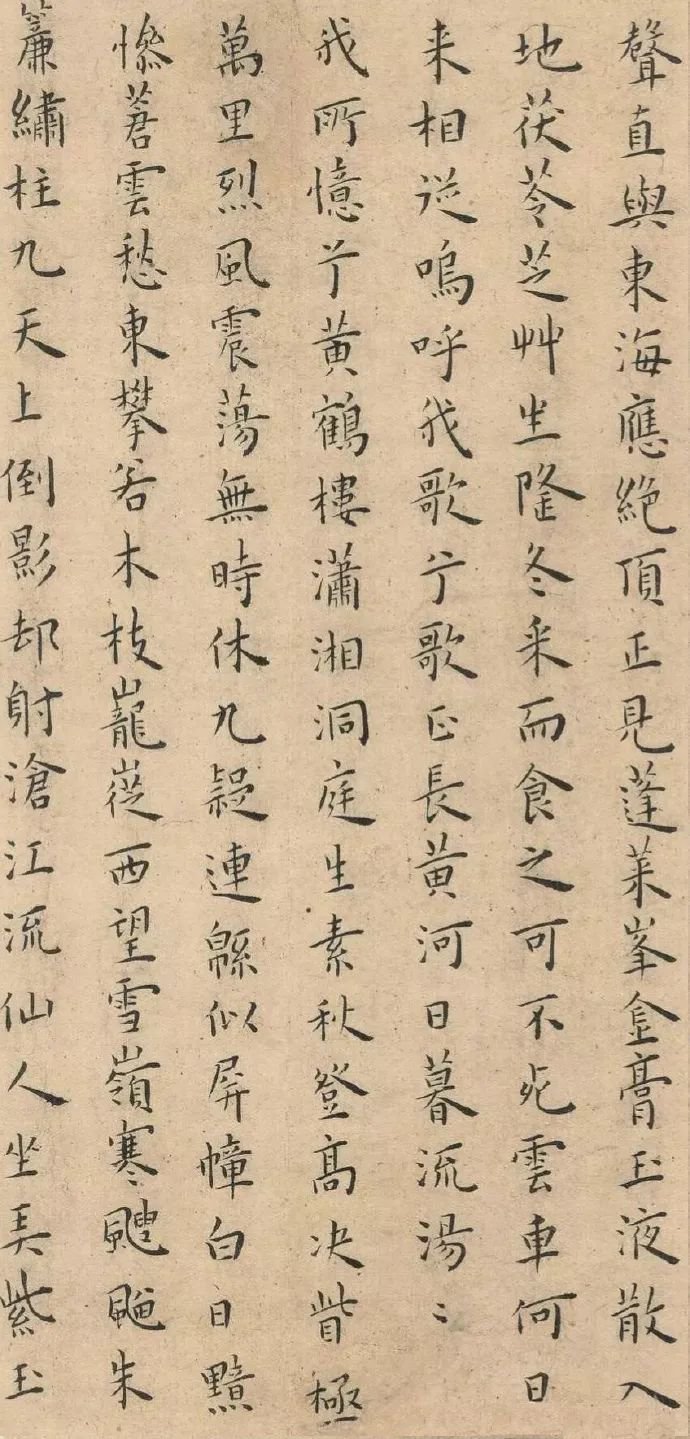 聲直與東海應絕頂正見蓬萊峯金膏玉液散入
地茯苓芝艸生隆冬采而食之可不死雲車何日
来相從嗚呼我歌兮歌正長黃河日暮流湯〻
我所憶兮黃鶴樓瀟湘洞庭生素秋登高決眥極
萬里烈風震蕩無時休九疑連緜似屏幛白日黯
慘蒼雲愁東攀若木枝巃嵸西望雪嶺寒颼飀朱
簾繡柱九天上倒影却射滄江流仙人坐弄紫玉